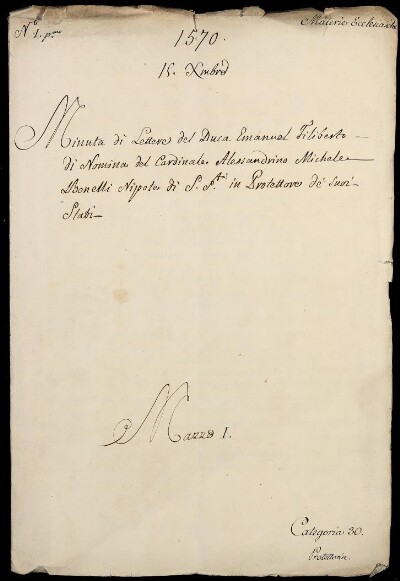 N.º 1. p.mo
Materie Ecclesiastiche
1570.
15. Xmbre
Minuta di Lettere del Duca Emanuel Filiberto
di Nomina del Cardinale Alessandrino Michele
Bonelli Nippote di S. S.tà in Protettore de' suoi
Stati
Mazzo 1.
Categoria 30.
Protettoria